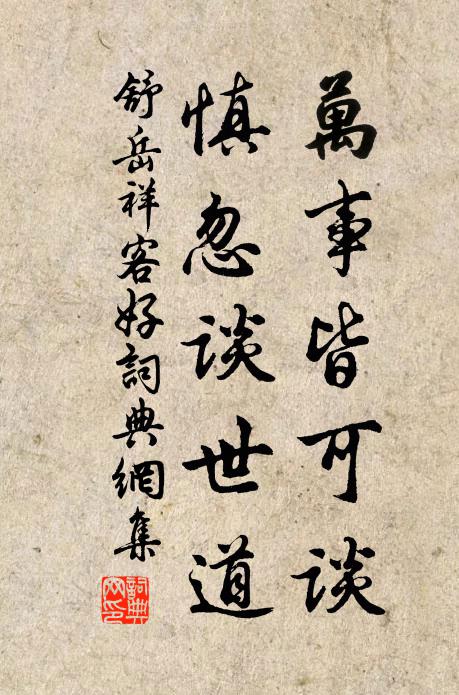 萬事皆可談
慎忽談世道
舒岳祥客好詞典網集
詞典